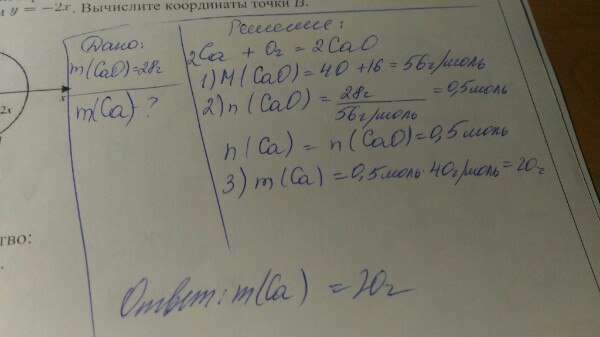 y = −2x. Вычислите координаты точки B.
Дано:
m(CaO)=28г
m(Ca) ?
Решение:
2Ca + O₂ = 2CaO
1) M(CaO)=40+16=56г/моль
2) n(CaO) = 28г/56г/моль = 0,5моль
n(Ca) = n(CaO)=0,5моль
3) m(Ca)=0,5моль·40г/моль=20г
2x
x
тво:
Ответ: m(Ca) = 20г